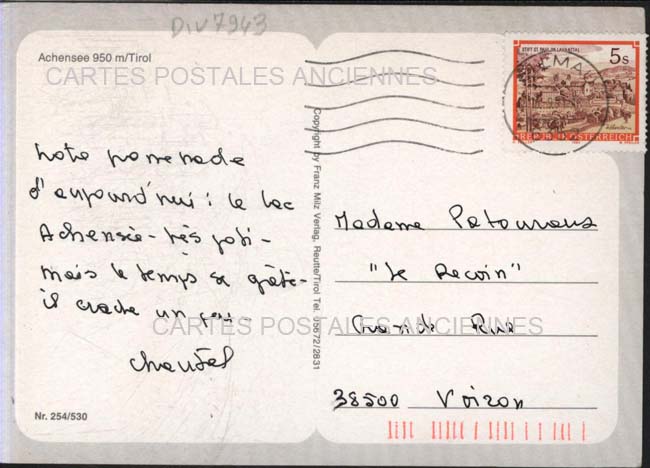 Div 7943
Achensee 950 m/Tirol
CARTES POSTALES ANCIENNES
STIFT ST. PAUL IM LAVANTTAL
5 s
REPUBLIK ÖSTERREICH
Notre promenade
d'aujourd'hui : le lac
Achensee - très joli -
mais le temps se gâte -
il crache un peu.
Chantal
Copyright by Franz Milz Verlag, Reutte/Tirol Tel. 05672/2831
Madame
"Le Recoin"
Grande Rue
38500 Voiron
CARTES POSTALES ANCIENNES
Nr. 254/530